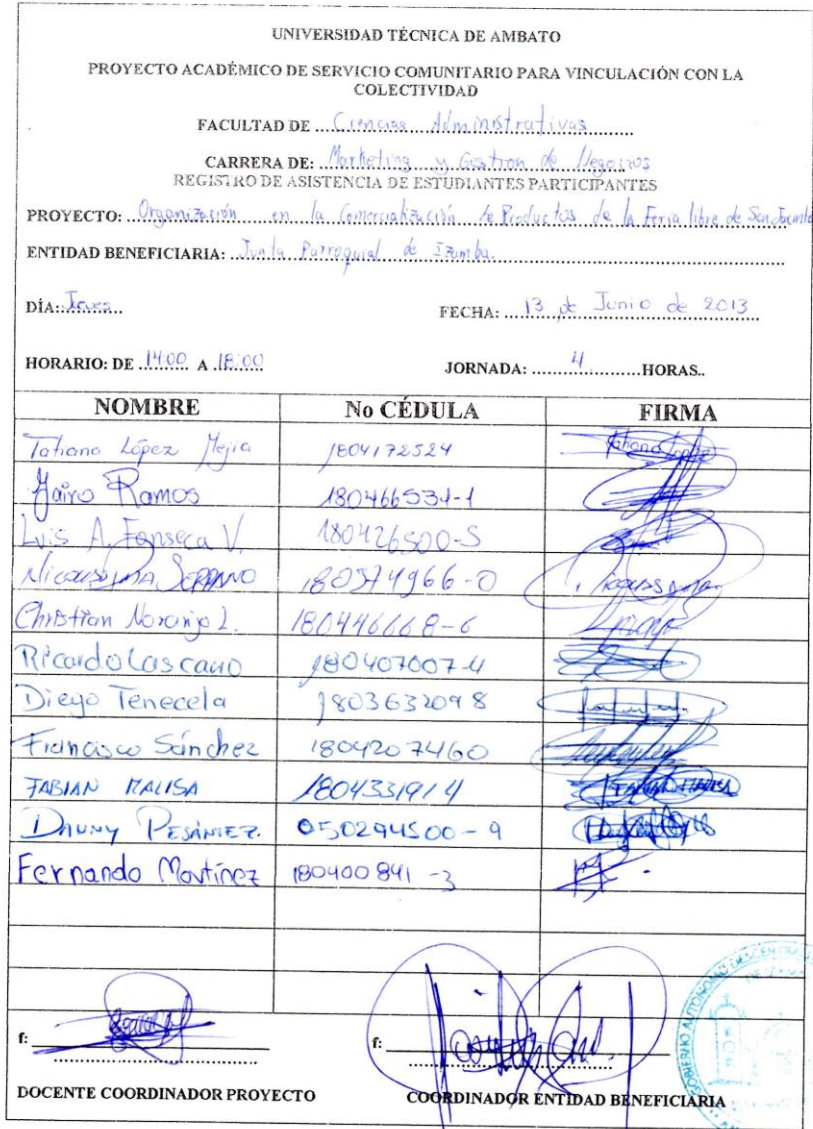 UNIVERSIDAD TÉCNICA DE AMBATO
PROYECTO ACADÉMICO DE SERVICIO COMUNITARIO PARA VINCULACIÓN CON LA
COLECTIVIDAD
FACULTAD DE Ciencias Administrativas
CARRERA DE: Marketing y Gestión de Negocios
REGISTRO DE ASISTENCIA DE ESTUDIANTES PARTICIPANTES
PROYECTO: Organización en la Comercialización de Productos de la Feria libre de San Jacinto
ENTIDAD BENEFICIARIA: Junta Parroquial de Izamba.
DÍA: Jueves FECHA: 13 de Junio de 2013
HORARIO: DE 14:00 A 18:00 JORNADA: 4 HORAS..
NOMBRE No CÉDULA FIRMA
Tatiana López Mejia 1804172524
Jairo Ramos 180466534-1
Luis A. Fonseca V. 180426500-5
SERRANO 180574966-0
Christian Naranjo L. 180446668-6
Ricardo Lascano 180407007-4
Diego Tenecela 1803632098
Francisco Sánchez 1804207460
FABIAN MALISA 1804331914
DANNY PESÁNTEZ. 050294500-9
Fernando Martínez 180400841-3
f: f:
DOCENTE COORDINADOR PROYECTO COORDINADOR ENTIDAD BENEFICIARIA
GOBIERNO AUTÓNOMO